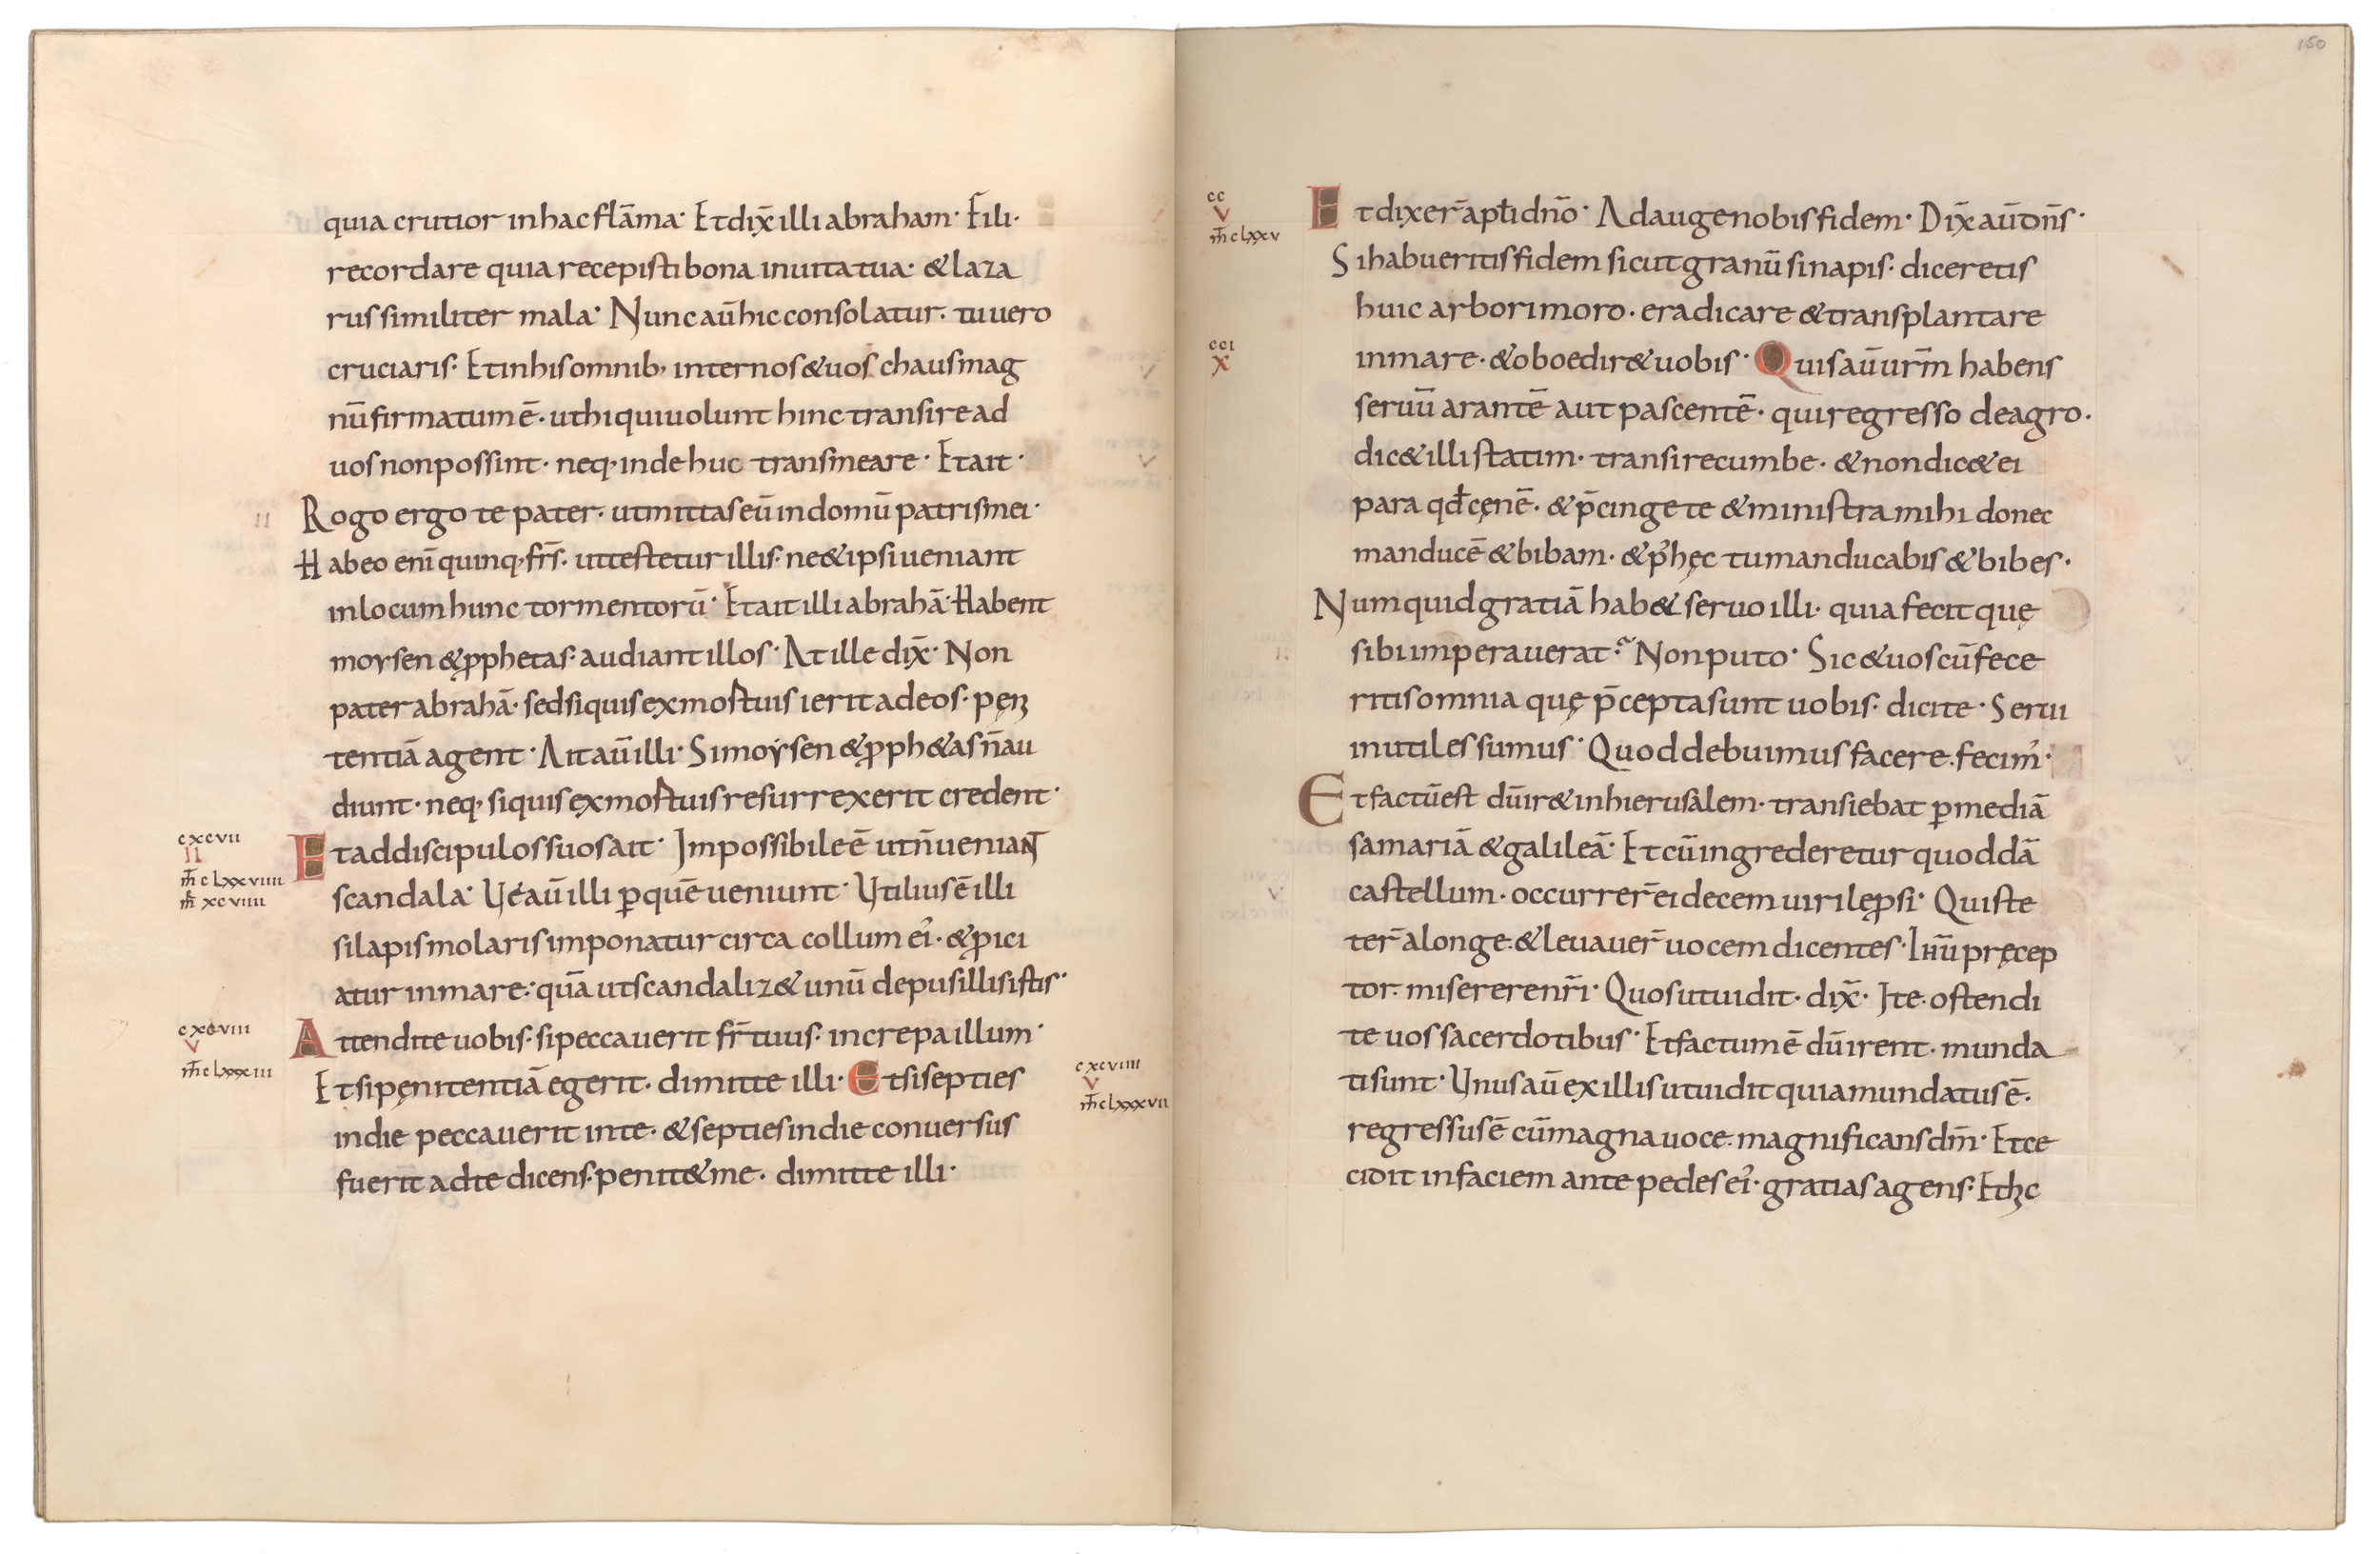 quia crutior in hac flāma· Et dix̄ illi abraham· Fili·
recordare quia recepisti bona in uita tua· & laza
rus similiter mala· Nunc aū hic consolatur· tu uero
cruciaris· Et in his omnib; inter nos & uos chaus mag
nū firmatum ē· ut hi qui uolunt hinc transire ad
uos non possint· neq; inde huc transmeare· Et ait·
Rogo ergo te pater· ut mittas eū in domū patris mei·
Habeo enī quinq; fr̄s· ut testetur illis· ne & ipsi ueniant
in locum hunc tormentorū· Et ait illi abrahā· Habent
moysen & ꝓphetas· audiant illos· At ille dix̄· Non
pater abrahā· sed si quis ex mortuis ierit ad eos· pęni
tentiā agent· Ait aū illi· Si moẏsen & ꝓph&as n̄ au
diunt· neq; si quis ex mortuis resurrexerit credent·
cxcvii
II
m̄t clxxviiii
m̄r xcviiii
Et ad discipulos suos ait· Impossibile ē ut n̄ ueniant
scandala· Ué aū illi ꝑ quē ueniunt· Utilius ē illi
si lapis molaris imponatur circa collum ei᾽· & ꝓici
atur in mare· quā ut scandaliz& unū de pusillis istis·
cxcviii
V
m̄t clxxxiii
Attendite uobis· si peccauerit fr̄ tuus· increpa illum·
Et si pęnitentiā egerit· dimitte illi· Et si septies
cxcviiii
V
m̄t clxxxvii
in die peccauerit in te· & septies in die conuersus
fuerit ad te dicens· penit& me· dimitte illi·
150
cc
V
m̄t clxxv
Et dixer̄ apłi dn̄o· Adauge nobis fidem· Dix̄ aū dn̄s·
Si habueritis fidem sicut granū sinapis· diceretis
huic arbori moro· eradicare & transplantare
cci
X
in mare· & oboedir& uobis· Quis aū ur̄m habens
seruū arantē aut pascentē· qui regresso de agro·
dic& illi statim· transi recumbe· & non dic& ei
para qđ cęnē· & p̄cinge te & ministra mihi donec
manducē & bibam· & p᾽ hęc tu manducabis & bibes·
Numquid gratiā hab& seruo illi· quia fecit quę
sibi imperauerat·? Non puto· Sic & uos cū fece
ritis omnia quę p̄cepta sunt uobis· dicite· Serui
inutiles sumus· Quod debuimus facere· fecim᾽·
Et factū est dū ir& in hierusalem· transiebat ꝑ mediā
samariā & galileā· Et cū ingrederetur quoddā
castellum· occurrer̄ ei decem uiri leꝓsi· Qui ste
ter̄ a longe· & leuauer̄ uocem dicentes· Ihū pręcep
tor· miserere nr̄i· Quos ut uidit· dix̄· Ite· ostendi
te uos sacerdotibus· Et factum ē dū irent· munda
ti sunt· Unus aū ex illis ut uidit quia mundatus ē·
regressus ē cū magna uoce· magnificans dm̄· Et ce
cidit in faciem ante pedes ei᾽· gratias agens· Et hic